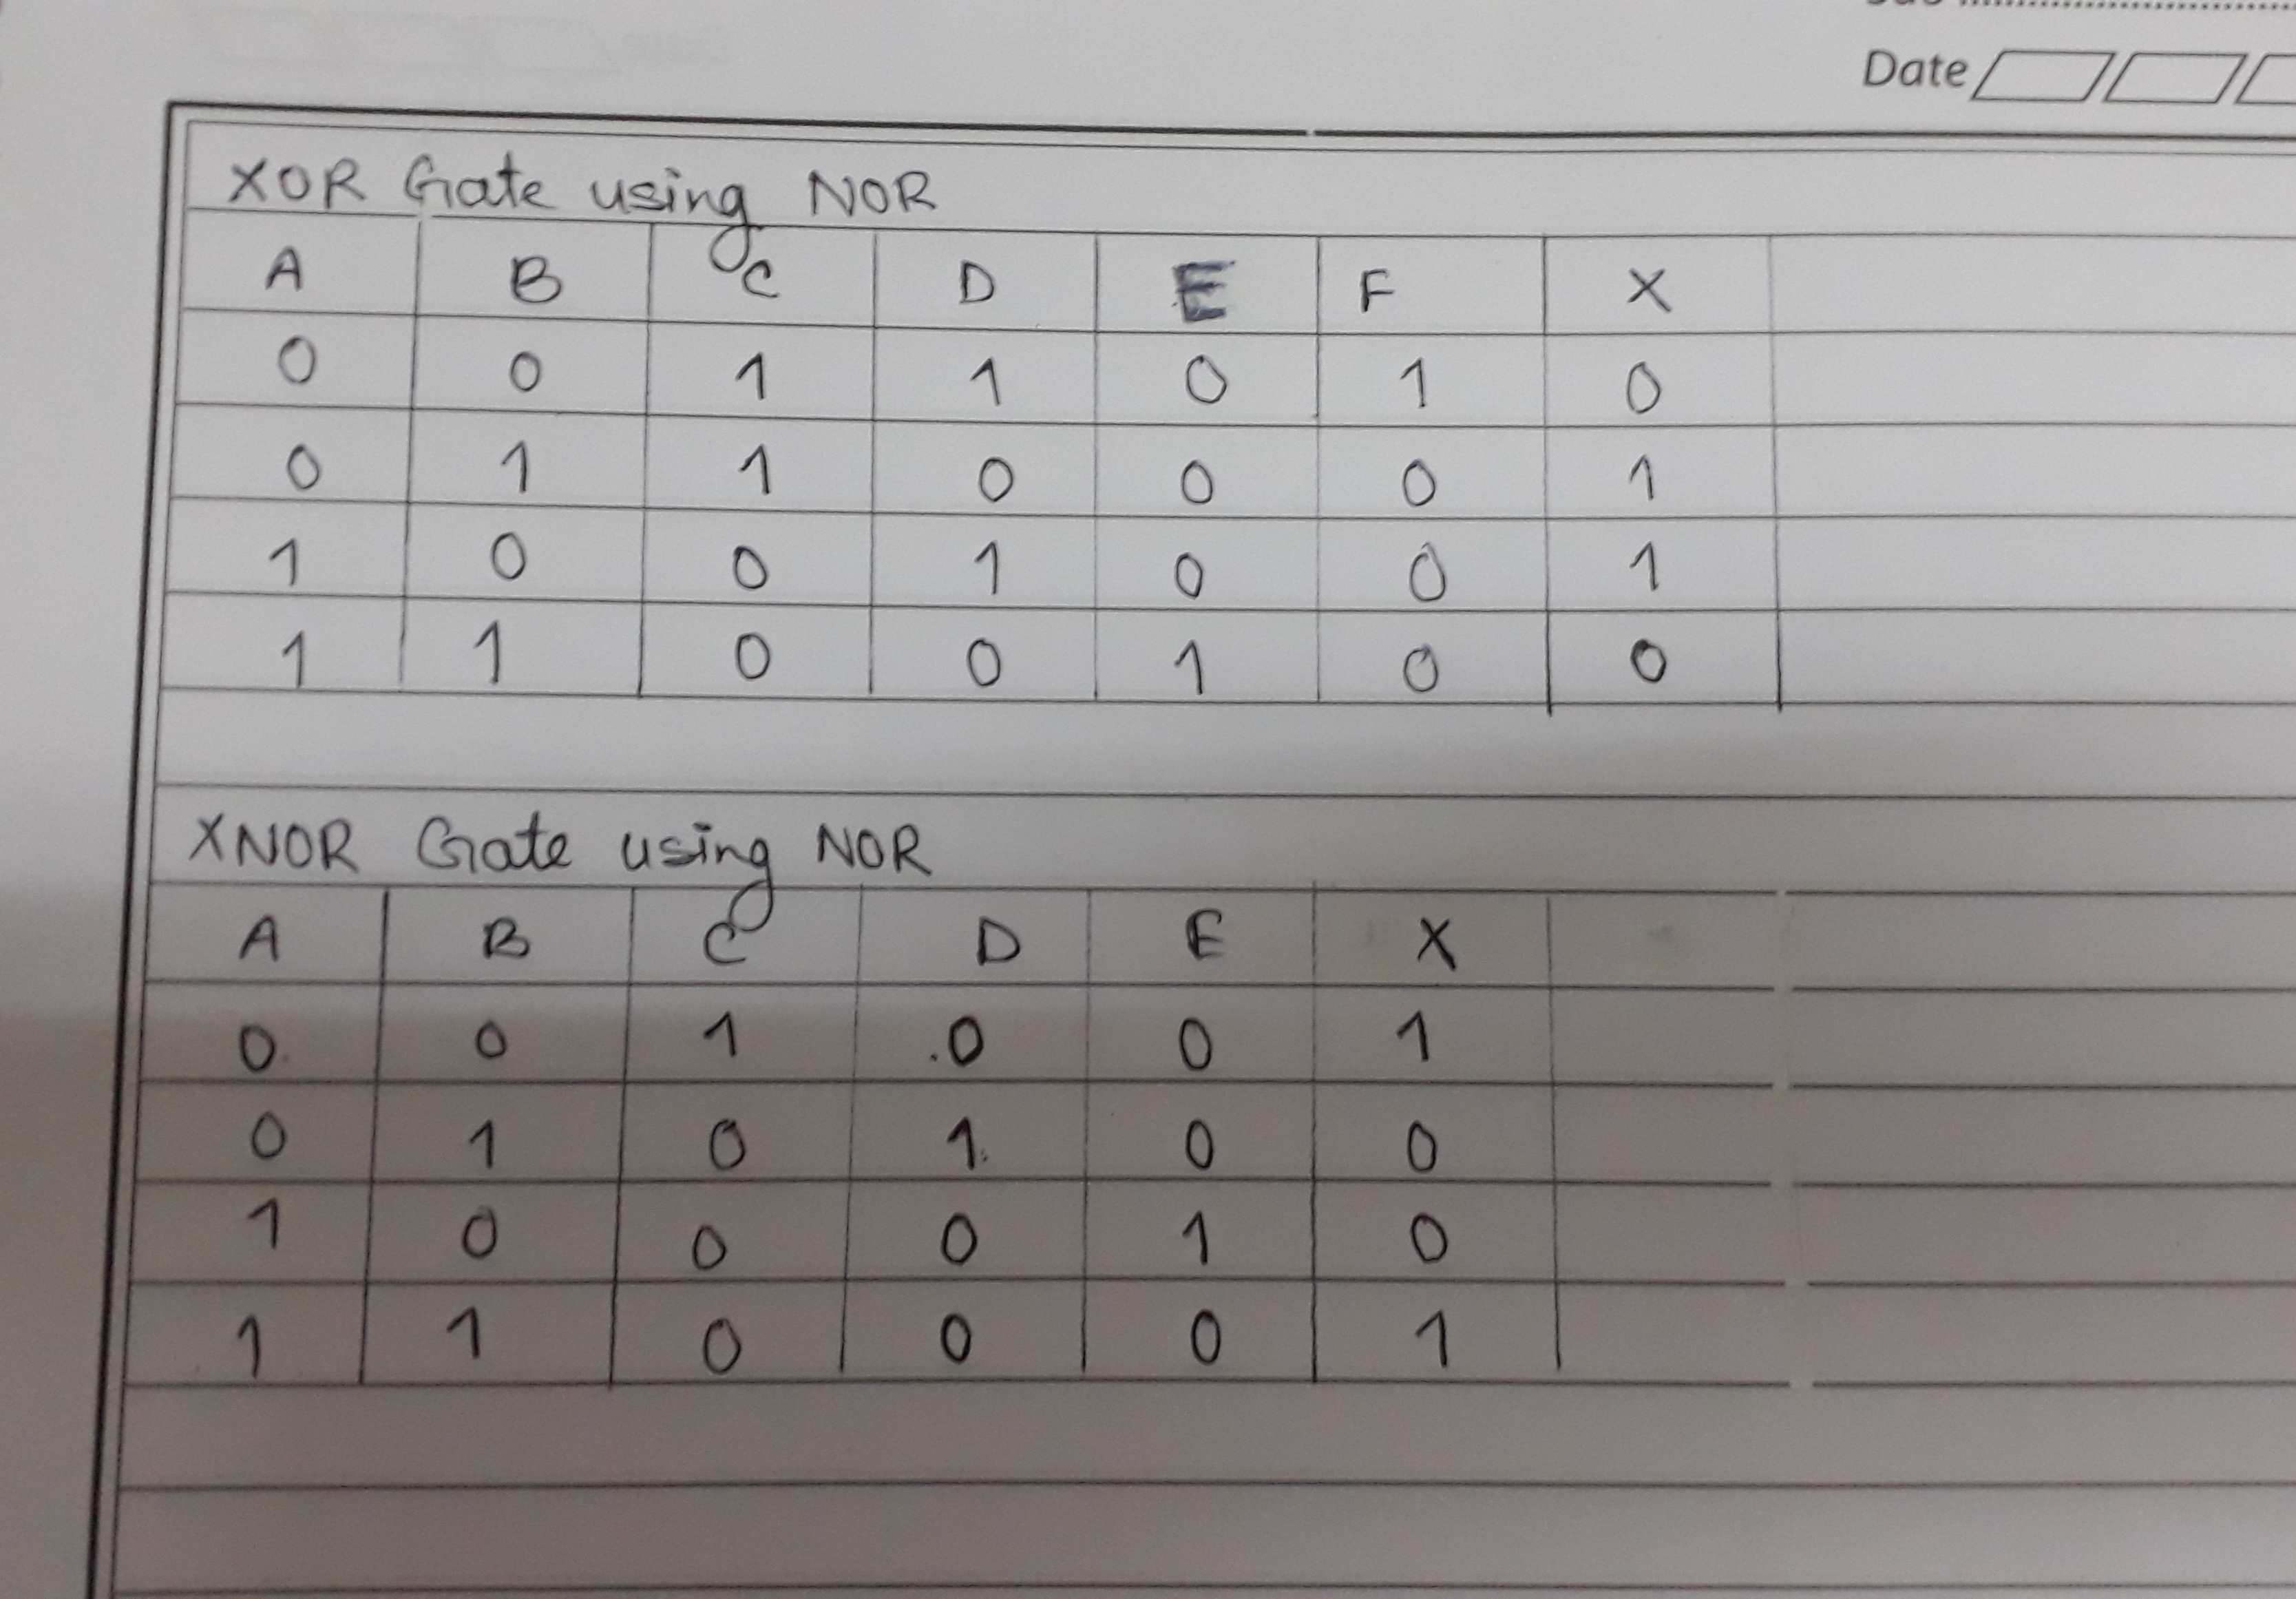 Date
XOR Gate using NOR
A B C D E F X
0 0 1 1 0 1 0
0 1 1 0 0 0 1
1 0 0 1 0 0 1
1 1 0 0 1 0 0
XNOR Gate using NOR
A B C D E X
0 0 1 0 0 1
0 1 0 1 0 0
1 0 0 0 1 0
1 1 0 0 0 1